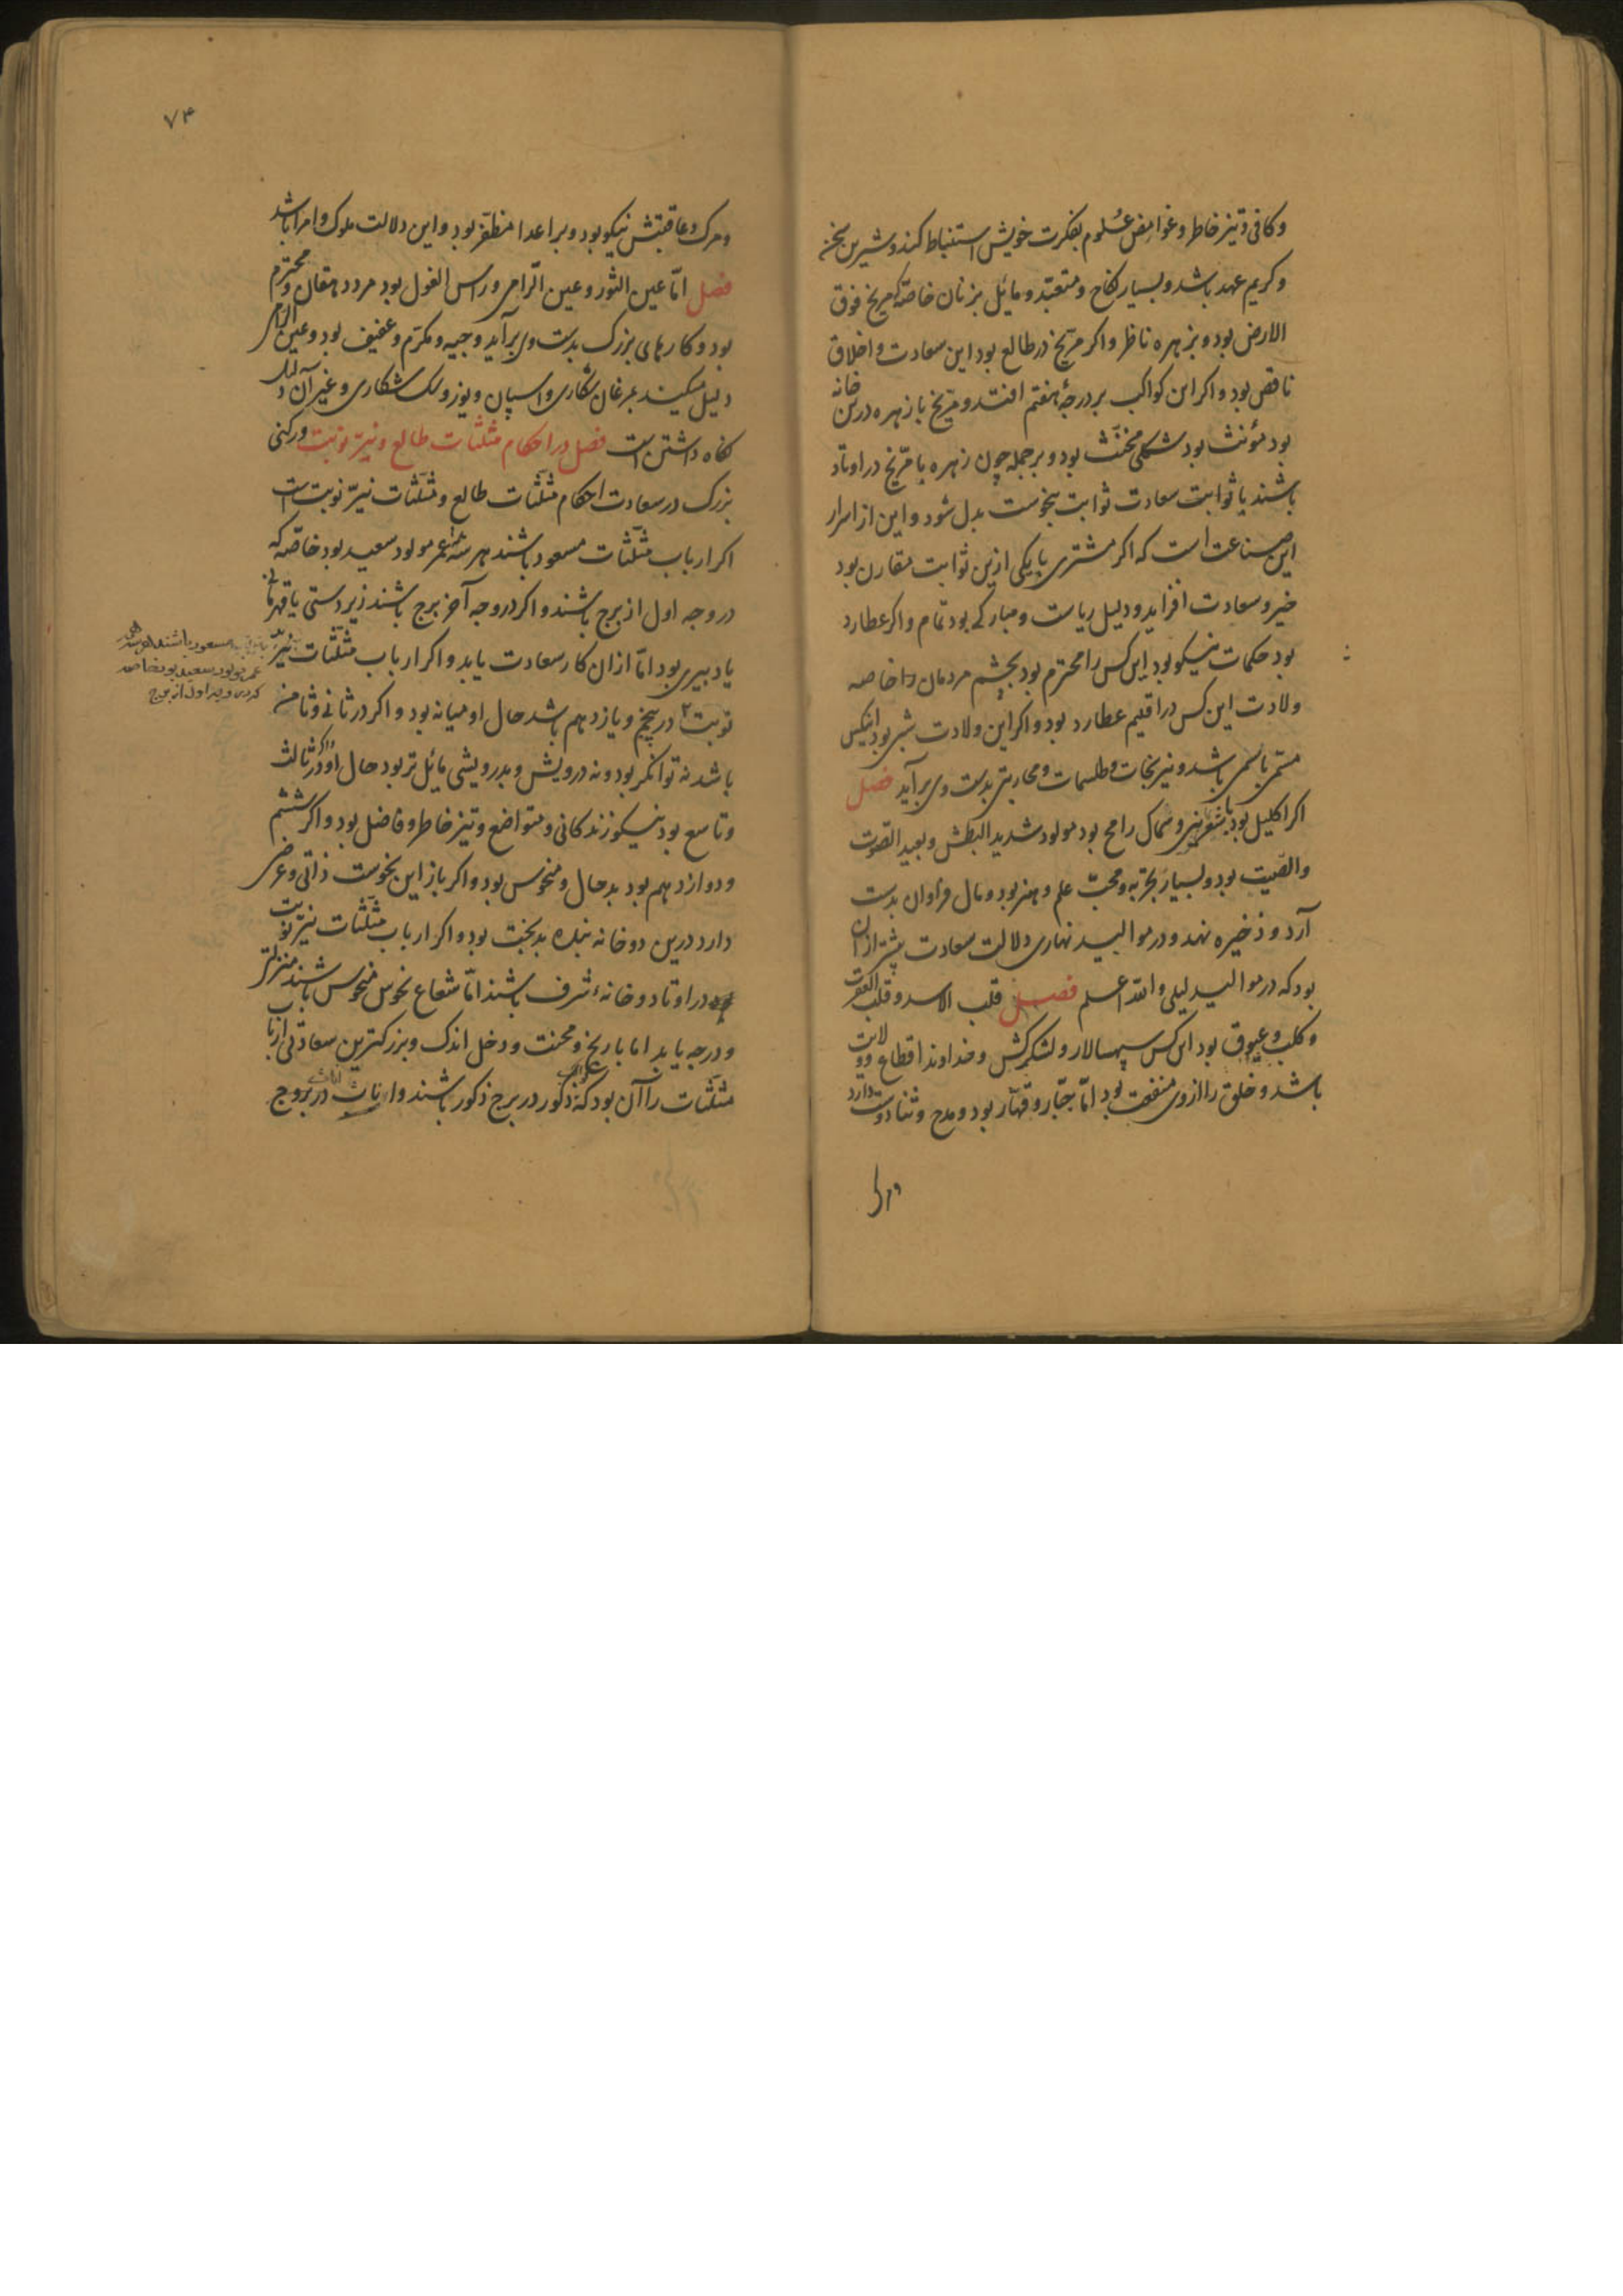 وکافی وتیز خاطر وغوامض علوم بفکرت خویش استنباط کند وشیرین سخن
وکریم عهد باشد وبسیار نکاح ومتعبّد ومائل بزنان خاصّه که مریخ فوق
الارض بود وبزهره ناظر واکر مریّخ در طالع بود این سعادت واخلاق
ناقص بود واکر این کواکب بر درجهٔ هفتم افتد ومریّخ با زهره درین خانه
بود مؤنث بود شکلی مخنّث بود وبر جمله چون زهره با مریّخ در اوتاد
باشند با ثوابت سعادت ثوابت بنحوست بدل شود واین از اسرار
این صناعت است که اکر مشتری با یکی ازین ثوابت مقارن بود
خیر وسعادت افزاید ودلیل ریاست ومبارکی بود تمام واکر عطارد
بود حکمات نیکو بود این کس را محترم بود بچشم مردمان خاصه
ولادت این کس در اقلیم عطارد بود واکر این ولادت شبی بود اینکس
باشد ونیرنجات وطلسمات ومحاربتی بدست وی برآید فصل
اکر اکلیل بود با شعریین وسماک رامح بود مولود شدید البطش وبعید الصّوت
والصّیت بود وبسیار تجربه ومحبّ علم وهنر بود ومال فراوان بدست
آرد وذخیره نهد ودر موالید نهاری دلالت سعادت بیشتر از آن
بود که در موالید لیلی والله اعلم فصل قلب الاسد وقلب العقرب
وکلب وعیوق بود این کس سپهسالار ولشکرکش وخداوند اقطاع وولایت
باشد وخلق را از وی منفعت بود امّا جبّار وقهّار بود ومدح وثنا دوست دارد
۷۴
ومرک وعاقبتش نیکو بود وبر اعدا مظفّر بود واین دلالت ملوک وامرا باشد
فصل امّا عین الثور وعین الرامی وراس الغول بود مرد دهقان ومحترم
بود وکارهای بزرک بدست وی برآید ووجیه ومکرّم وعفیف بود وعین الرامی
دلیل میکند بمرغان شکاری واسپان ویوز وسک شکاری وغیر آن
نکاه داشتن است فصل در احکام مثلّثات طالع ونیّر نوبت ورکنی
بزرک در سعادت احکام مثلّثات طالع ومثلّثات نیّر نوبت است
اکر ارباب مثلّثات مسعود باشند هر سه عمر مولود سعید بود خاصّه که
در وجه اول از برج باشند واکر در وجه آخر برج باشند زیردستی یا قهرمانی
یا دبیری بود امّا ازان کار سعادت یابد واکر ارباب مثلّثات نیّر
نوبت در پنجم ویازدهم باشد حال او میانه بود واکر در ثانی وثامن
باشد نه توانکر بود ونه درویش وبدرویشی مائل تر بود حال او واکر در ثالث
وتاسع بود نیکو زندکانی ومتواضع وتیز خاطر وفاضل بود واکر ششم
ودوازدهم بود بدحال ومنحوس بود واکر باز این نحوست ذاتی وعرضی
دارد درین دو خانه بنده بدبخت بود واکر ارباب مثلّثات نیّر نوبت
در اوتاد وخانهٔ شرف باشند امّا شعاع نحوس منحوس باشند منزلت
ودرجه یابد اما با رنج ومحنت ودخل اندک وبزرکترین سعادتی ارباب
مثلّثات را آن بود که ذکور در برج ذکور باشند واناث در بروج
مسعود باشند
عمر مولود سعید بود خاصه
که در وجه اول از برج